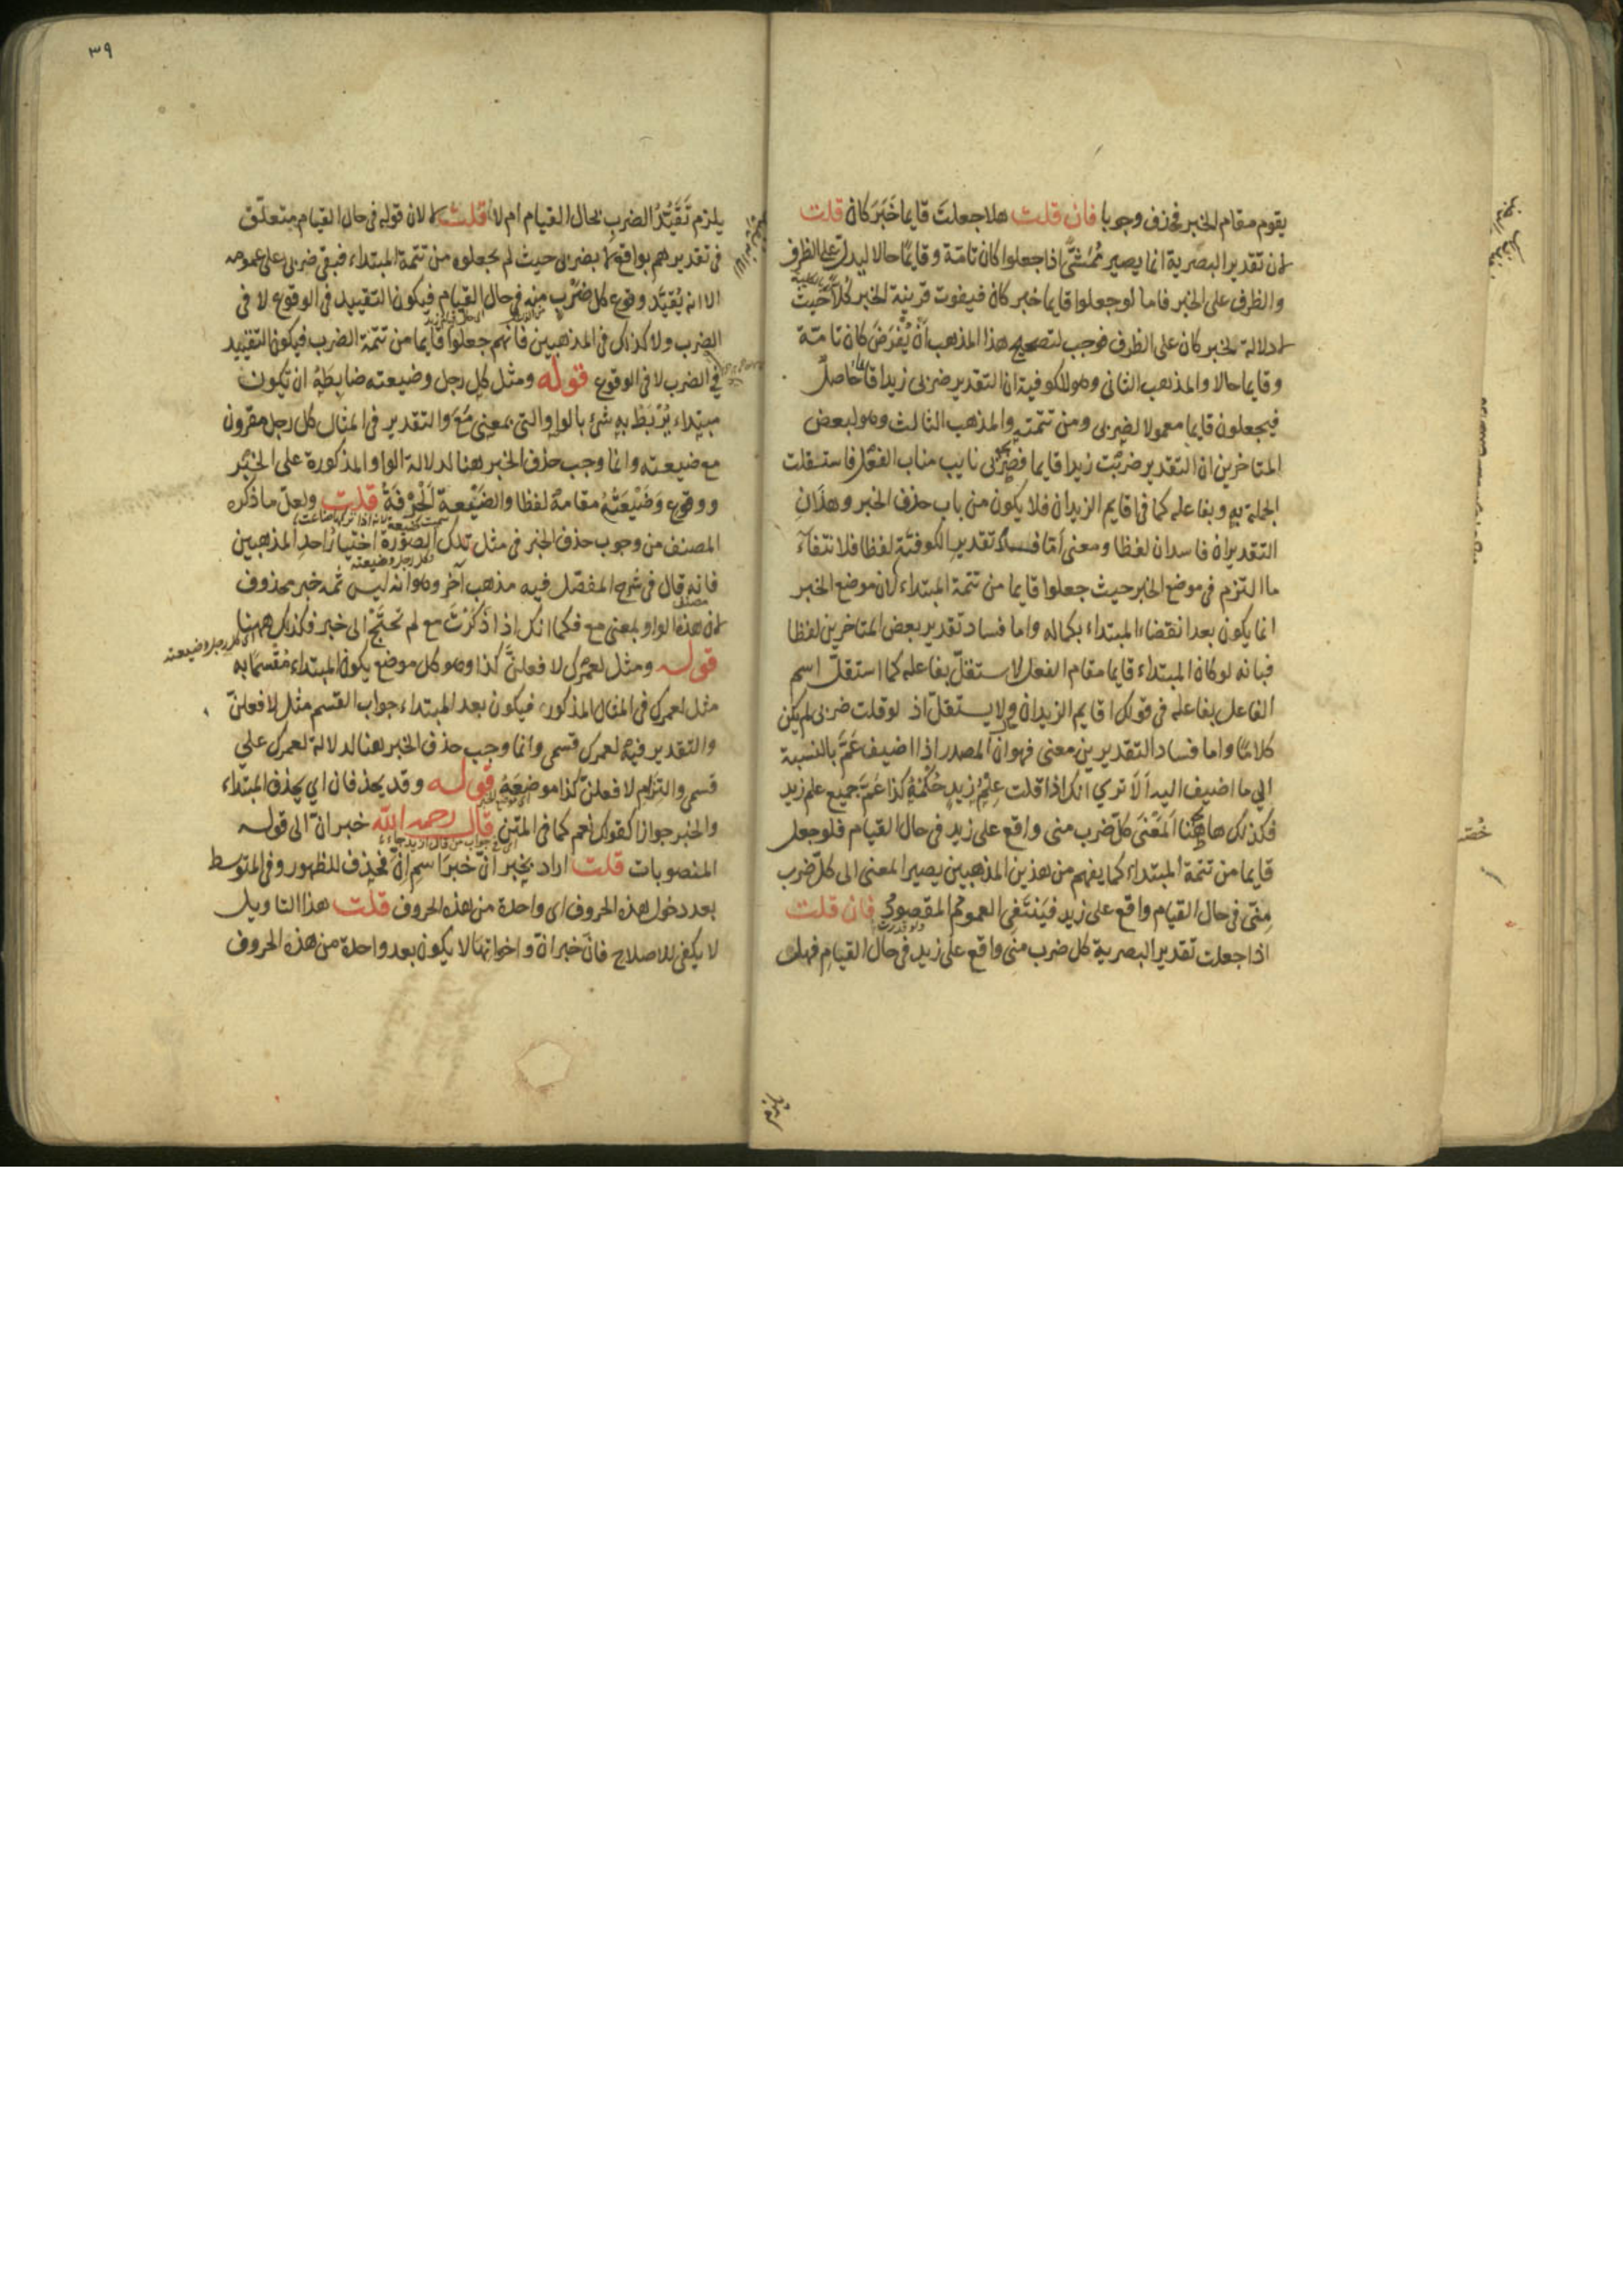 يقوم مقام الخبر فحذف وجوبا فان قلت هلا جعلت قايما خبر كان قلت
لان تقدير البصرية انما يصير ممشى اذا جعلوا كان تامة وقايما حالا ليدل على الظرف
والظرف على الخبر فاما لو جعلوا قايما خبر كان فيفوت قرينة الخبر حيث
لا دلالة لخبر كان على الظرف فوجب لتصحيح هذا المذهب ان يفرض كان تامة
وقايما حالا والمذهب الثانى وهو للكوفية ان التقدير ضربى زيدا قايما حاصل
فيجعلون قايما معمولا لضربى ومن تتمته والمذهب الثالث وهو لبعض
المتاخرين ان التقدير ضربت زيدا قايما فضربى نايب مناب الفعل فاستقلت
الجملة به وبفاعله كما فى اقايم الزيدان فلا يكون من باب حذف الخبر وهذان
التقديران فاسدان لفظا ومعنى اما فساد تقدير الكوفية لفظا فلانتفاء
ما التزم فى موضع الخبر حيث جعلوا قايما من تتمة المبتداء لان موضع الخبر
انما يكون بعد انقضاء المبتداء بكماله واما فساد تقدير بعض المتاخرين لفظا
فبانه لو كان المبتداء قايما مقام الفعل لاستقل بفاعله كما استقل اسم
الفاعل بفاعله فى قولك اقايم الزيدان ولا يستقل اذ لو قلت ضربى لم يكن
كلاما واما فساد التقديرين معنى فهو ان المصدر اذا اضيف عم بالنسبة
الى ما اضيف اليه الا ترى انك اذا قلت علم زيد حكمه كذا عم جميع علم زيد
فكذلك هاهنا المعنى كل ضرب منى واقع على زيد فى حال القيام فلو جعل
قايما من تتمة المبتداء كما يفهم من هذين المذهبين يصير المعنى الى كل ضرب
منى فى حال القيام واقع على زيد فينتفى العموم المقصود فان قلت
اذا جعلت تقدير البصرية كل ضرب منى واقع على زيد فى حال القيام فهل
٣٩
يلزم تقيد الضرب بحال القيام ام لا قلت لا لان قوله فى حال القيام متعلق
فى تقديرهم بواقع لا بضربى حيث لم يجعلوه من تتمة المبتداء فبقى ضربى على عمومه
الا انه يقيد وقوع كل ضرب منه فى حال القيام فيكون التقييد فى الوقوع لا فى
الضرب ولا كذلك فى المذهبين فانهم جعلوا قايما من تتمة الضرب فيكون التقييد
فى الضرب لا فى الوقوع قوله ومثل كل رجل وضيعته ضابطه ان يكون
مبتداء يربط به شئ بالواو التى بمعنى مع والتقدير فى المثال كل رجل مقرون
مع ضيعته وانما وجب حذف الخبر هنا لدلالة الواو المذكورة على الخبر
ووقوع وضيعته مقامه لفظا والضيعة الحرفة قلت ولعل ما ذكره
المصنف من وجوب حذف الخبر فى مثل تلك الصورة اختيار احد المذهبين
فانه قال فى شرح المفصل فيه مذهب آخر وهو انه ليس ثمه خبر محذوف
لان هذه الواو بمعنى مع فكما انك اذا ذكرت مع لم تحتج الى خبر فكذلك ههنا
قوله ومثل لعمرك لافعلن كذا وهو كل موضع يكون المبتداء مقسما به
مثل لعمرك فى المثال المذكور فيكون بعد المبتداء جواب القسم مثل لافعلن
والتقدير فيه لعمرك قسمى وانما وجب حذف الخبر هنا لدلالة لعمرك على
قسمى والتزام لافعلن كذا موضعه قوله وقد يحذفان اى يحذف المبتداء
والخبر جوازا كقولك نعم كما فى المتن قال رحمه الله خبر ان الى قوله
المنصوبات قلت اراد بخبر ان خبر اسم ان فحذف للظهور وفى المتوسط
بعد دخول هذه الحروف اى واحدة من هذه الحروف قلت هذا التاويل
لا يكفى للاصلاح فان خبر ان واخواتها لا يكون بعد واحدة من هذه الحروف